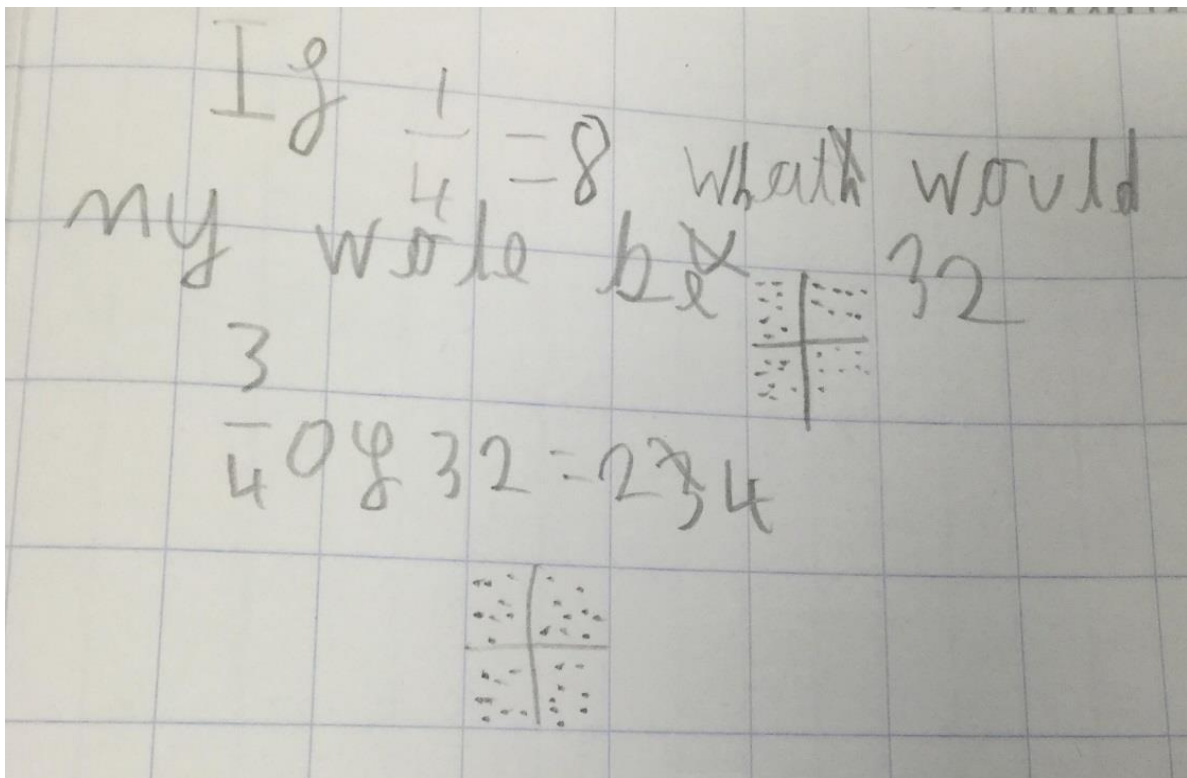 If 1/4 = 8 what would
my wole be 32
3/4 of 32 = 24